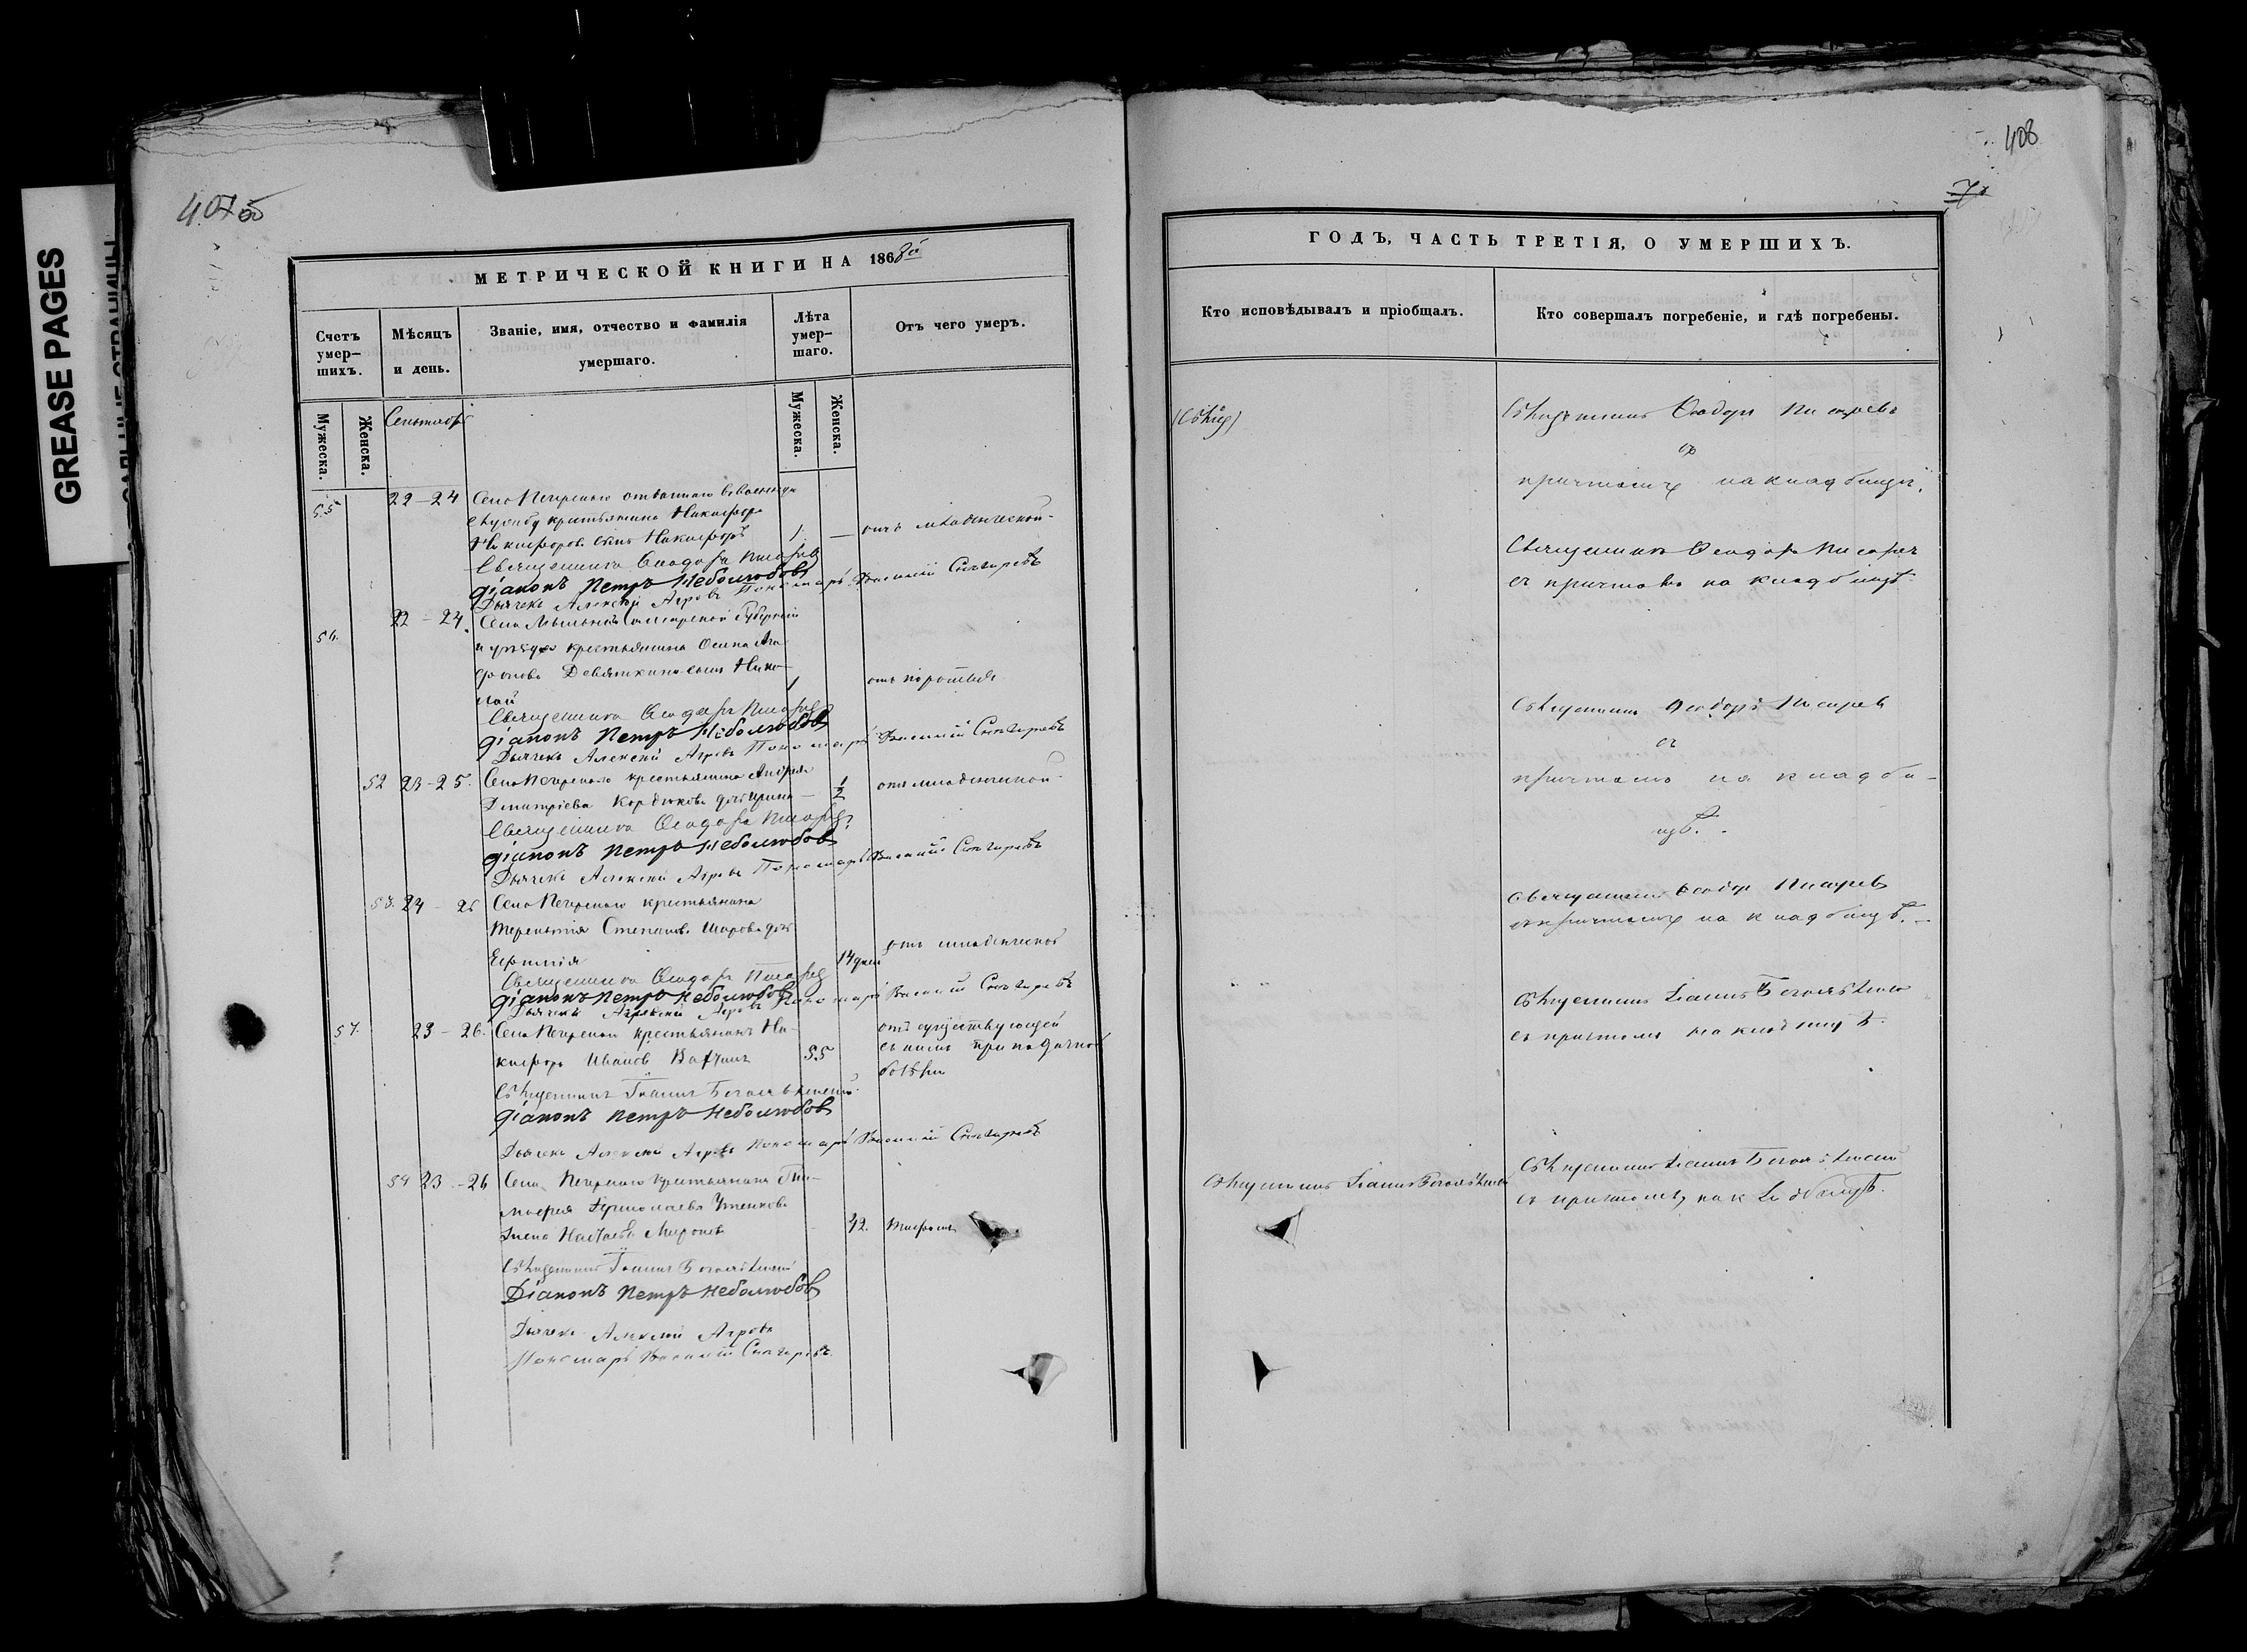 GREASE PAGES
407 об
МЕТРИЧЕСКОЙ КНИГИ НА 1868й
Счетъ умер-шихъ.
Мѣсяцъ и день.
Званіе, имя, отчество и фамилія умершаго.
Лѣта умер-шаго.
Отъ чего умеръ.
Мужеска.
Женска.
Мужеска.
Женска.
Сентябрь
55
22 - 24
Села Печерскаго
службу крестьянина Никифора
Никифорова сынъ Никифоръ
1
отъ младенческой
Священникъ Феодоръ Писарев
діаконъ Петръ Неболюбовъ
Дьячекъ Алексѣй Агровъ Пономарь Василій Снегиревъ
56.
22 - 24.
Села Самарской Губерніи
и уѣзда крестьянина Осипа Ага
фонова Девяткина сынъ Нико
лай
1
отъ
Священникъ Феодоръ Писарев
діаконъ Петръ Неболюбовъ
Дьячекъ Алексѣй Агровъ Пономарь Василій Снегиревъ
52
23 - 25.
Села Печерскаго крестьянина Андрея
Дмитріева дочь Ирина
1/2
отъ младенческой
Священникъ Феодоръ Писарев
діаконъ Петръ Неболюбовъ
Дьячекъ Алексѣй Агровъ Пономарь Василій Снегиревъ
53.
24 - 25
Села Печерскаго крестьянина
Терентія Степанова дочь
14 дней
отъ младенческой
Священникъ Феодоръ Писарев
діаконъ Петръ Неболюбовъ
Дьячекъ Алексѣй Агровъ Пономарь Василій Снегиревъ
57.
23 - 26.
Села Печерскаго крестьянинъ Ни
кифоръ Ивановъ
55
отъ существующей
въ нимъ припадочной
болѣзни
Священникъ Іоаннъ Богоявленскій
діаконъ Петръ Неболюбовъ
Дьячекъ Алексѣй Агровъ Пономарь Василій Снегиревъ
54
23 - 26
Села Печерскаго крестьянина Ти-
мофея
жена Миронова
42.
Священникъ Іоаннъ Богоявленскій
Діаконъ Петръ Неболюбовъ
Дьячекъ Алексѣй Агровъ
Пономарь Василій Снегиревъ
408
ГОДЪ, ЧАСТЬ ТРЕТІЯ, О УМЕРШИХЪ.
Кто исповѣдывалъ и пріобщалъ.
Кто совершалъ погребеніе, и гдѣ погребены.
Священникъ Феодоръ Писаревъ
съ
причтомъ на кладбищѣ.
Священникъ Феодоръ Писарев
съ причтомъ на кладбищѣ
Священникъ Феодоръ Писарев
съ
причтомъ на кладби-
щѣ.
Священникъ Феодоръ Писарев
съ причтомъ на кладбищѣ.
Священникъ Іоаннъ Богоявленск
съ причтомъ на кладбищѣ.
Священникъ Іоаннъ Богоявленск
Священникъ Іоаннъ Богоявленскій
съ причтомъ, на кладбищѣ.